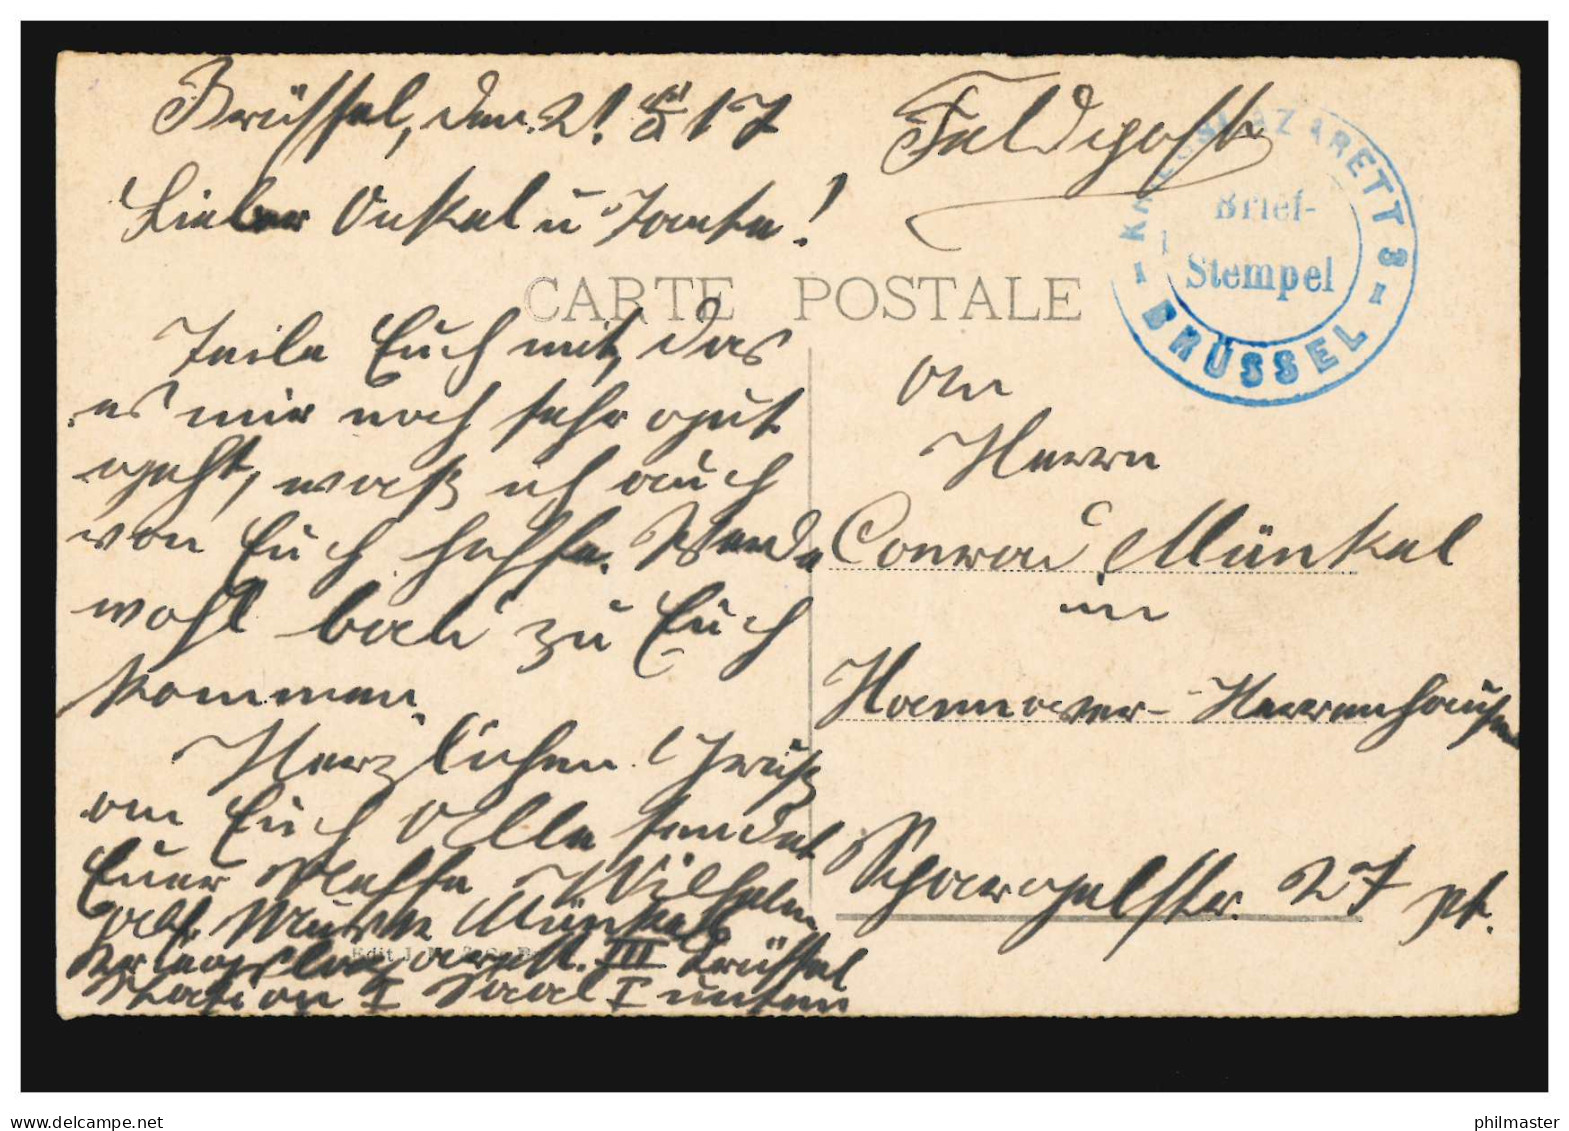 Brüssel, den 21. 17
Feldpost
KRIEGSLAZARETT 3
Brief-
Stempel
BRÜSSEL
Lieber Onkel u Tante!
CARTE POSTALE
Teile Euch mit, das
es mir noch sehr gut
geht, waß ich auch
von Euch hoffe. Werde
wohl bald zu Euch
kommen.
Herzlichen Gruß
an Euch Alle sendet
Euer Neffe Wilhelm
Münkel
Kriegslazarett. III Brüssel
Station I Saal I unten
An
Herrn
Conrad Münkel
in
Hannover-Herrenhausen
Scharagelstr. 27 pt.
delcampe.net
philmaster